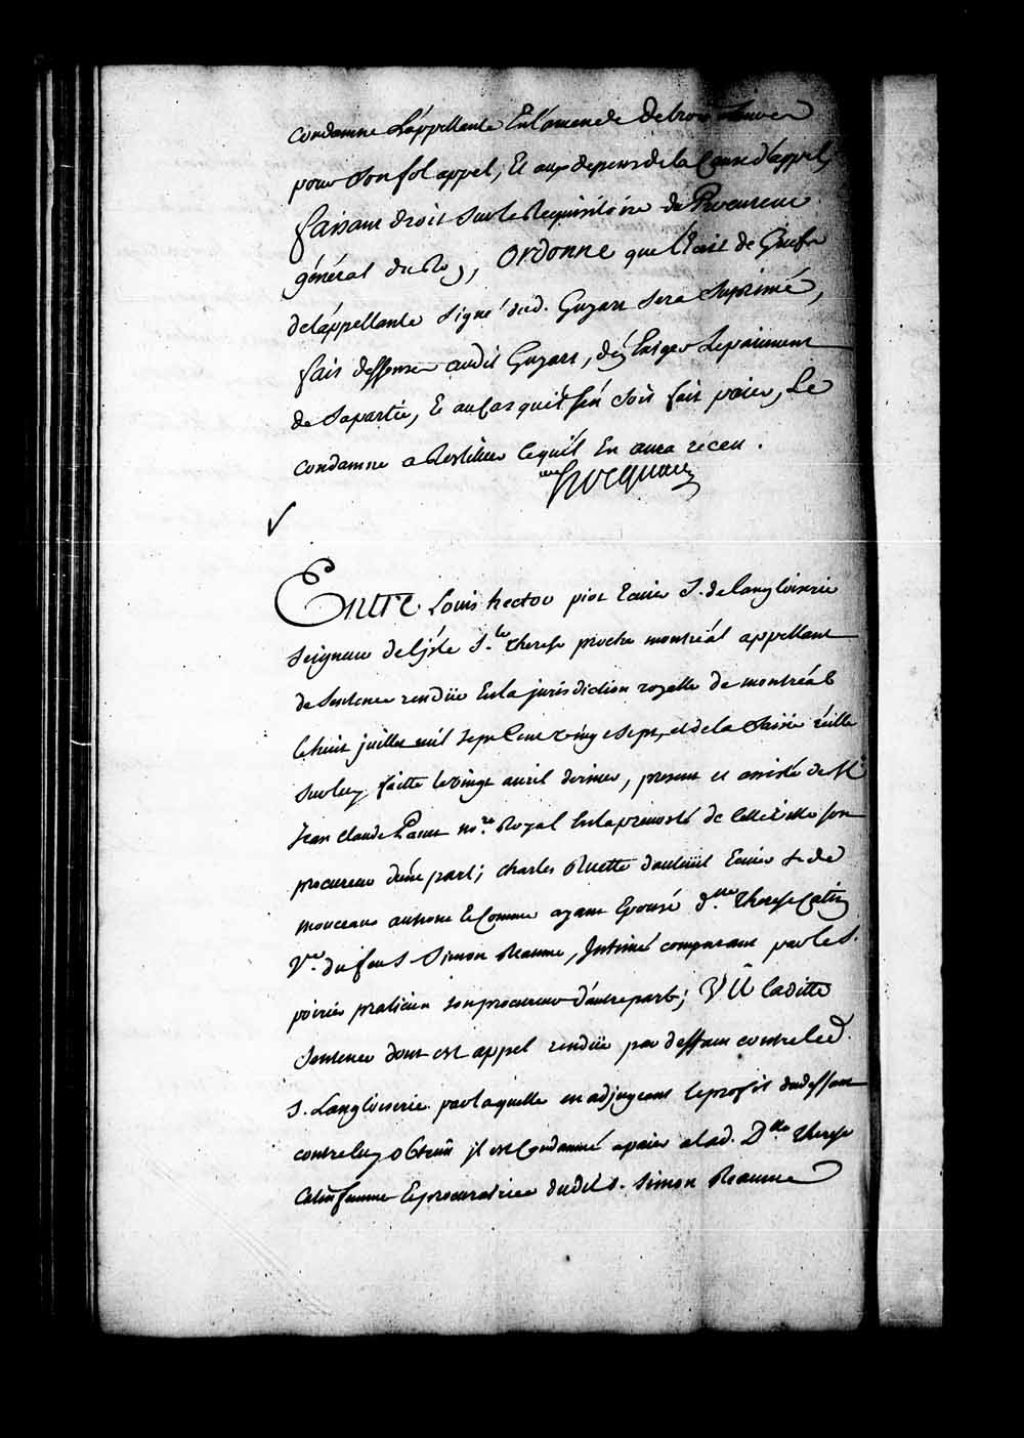 condamne L'appellante En l'amende de trois Livres
pour Son fol appel, Et aux depens de la Cause d'appel,
faisant droit Sur le Requisitoire du Procureur
général du Roy, ordonne que l'Ecrit de Griefs
de l'appellante Signé dud. Guyart Sera Suprimé,
fait deffenses audit Guyart, d'Exiger Le paiement
de Sa partie, Et au Cas qu'il S'en Soit fait paier, Le
condamne a Restituer ce qu'il En aura réceu.
Hocquart
Entre Louis hector piot Ecuier S. de Langloiserie
Seigneur de L'jsle Ste. Therese proche montréal appellant
de Sentence rendüe En la jurisdiction royalle de montréal
le huit juillet mil Sept Cent vingt Sept, et de la Saisie réelle
Sur luy faitte le vingt avril dernier, present et assisté de Me.
Jean Claude Panet nore. Royal En la prevosté de Cette ville son
procureur d'une part; Charles Ruette d'auteüil Ecuier S. de
monceaux au nom Et Comme ayant Epousé dlle. Therese Catin
Ve. du feu S. Simon Reaume, Intimé comparant par le S.
poirier praticien son procureur d'autre part; VÛ laditte
Sentence dont est appel rendüe par deffaut contre led.
S. Langloiserie par laquelle en adjugeant le profit du deffaut
contre luy obtenu jl est Condamné a paier a lad. Dlle. Therese
Catin femme Et procuratrice dudit S. Simon Reaume